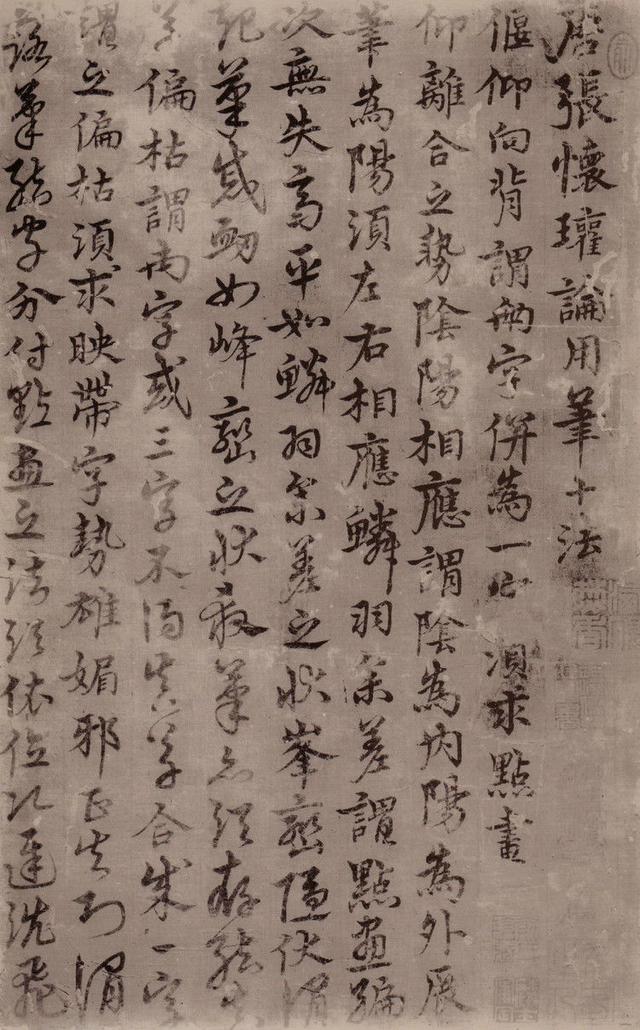 唐張懷瓘論用筆十法
偃仰向背謂兩字併為一字須求點畫
仰離合之勢陰陽相應謂陰為內陽為外展
筆為陽須左右相應鱗羽參差謂點畫編
次無失高平如鱗羽參差之狀峯巒隱伏謂
起筆蹙衄如峰巒之狀殺筆亦須存結真
草偏枯謂兩字或三字不得真草合成一字
謂之偏枯須求映帶字勢雄媚邪正失則謂
落筆結字分付點畫之法須依位次遲澁飛